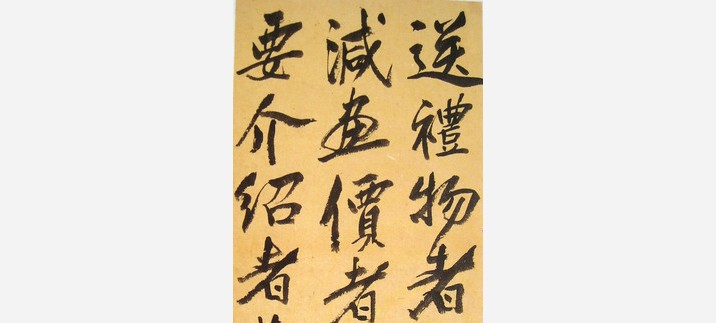 送禮物者
減畫價者
要介紹者